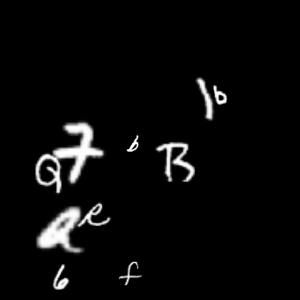 1b
Q7 b B
a e
6 f